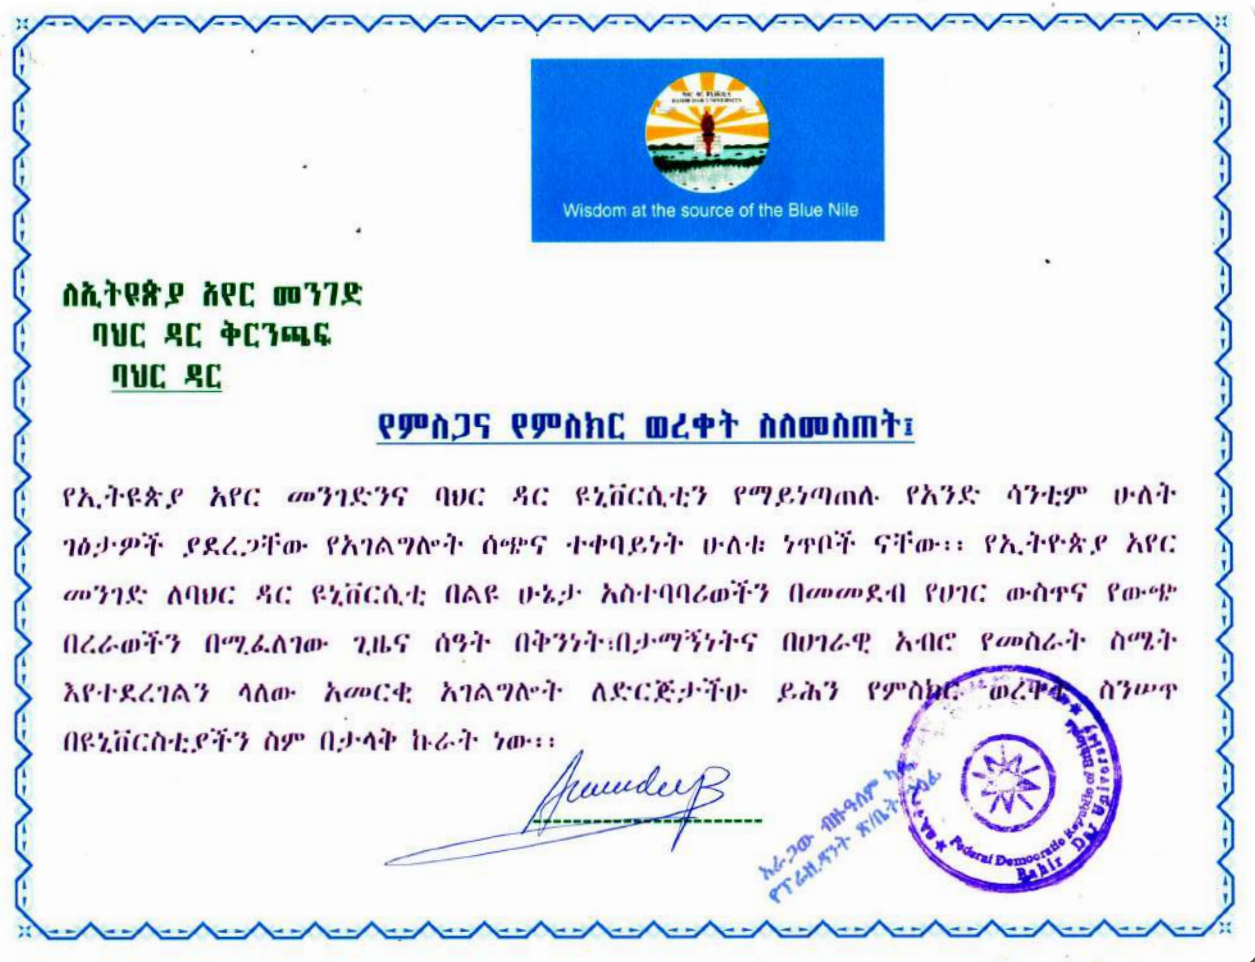 ባሕር ዳር ዩኒቨርሲቲ
BAHIR DAR UNIVERSITY
Wisdom at the source of the Blue Nile
ለኢትዩጵያ አየር መንገድ
ባህር ዳር ቅርንጫፍ
ባህር ዳር
የምስጋና የምስክር ወረቀት ስለመስጠት፤
የኢትዩጵያ አየር መንገድንና ባህር ዳር ዩኒቨርሲቲን የማይነጣጠሉ የአንድ ሳንቲም ሁለት
ገፅታዎች ያደረጋቸው የአገልግሎት ሰጭና ተቀባይነት ሁለቱ ነጥቦች ናቸው፡፡ የኢትዮጵያ አየር
መንገድ ለባህር ዳር ዩኒቨርሲቲ በልዩ ሁኔታ አስተባባሪወችን በመመደብ የሀገር ውስጥና የውጭ
በረራወችን በሚፈለገው ጊዜና ሰዓት በቅንነት፡በታማኝነትና በሀገራዊ አብሮ የመስራት ስሜት
እየተደረገልን ላለው አመርቂ አገልግሎት ለድርጅታችሁ ይሕን የምስክር ወረቀት ስንሠጥ
በዩኒቨርስቲያችን ስም በታላቅ ኩራት ነው፡፡
አራጋው ብዙዓለም
የፕሬዚዳንት ጽ/ቤት ኃላፊ
Federal Democratic Republic of Ethiopia
Bahir Dar University